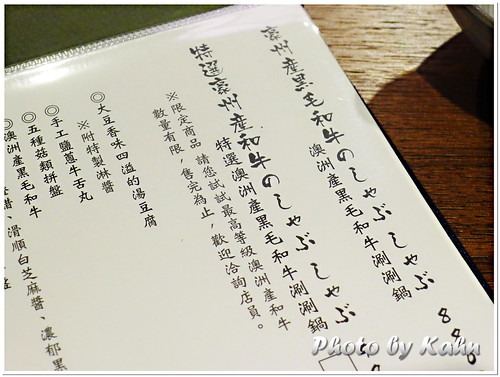 豪州産黒毛和牛のしゃぶしゃぶ
澳洲產黑毛和牛涮涮鍋
880
特選豪州産和牛のしゃぶしゃぶ
特選澳洲產黑毛和牛涮涮鍋
※限定商品，請您試試最高等級澳洲產和牛
數量有限，售完為止，歡迎洽詢店員。
◎大豆香味四溢的湯豆腐
※附特製淋醬
◎手工鹽蔥牛舌丸
◎五種菇類拼盤
◎澳洲產黑毛和牛
、滑順白芝麻醬、濃郁黑
Photo by Kahn